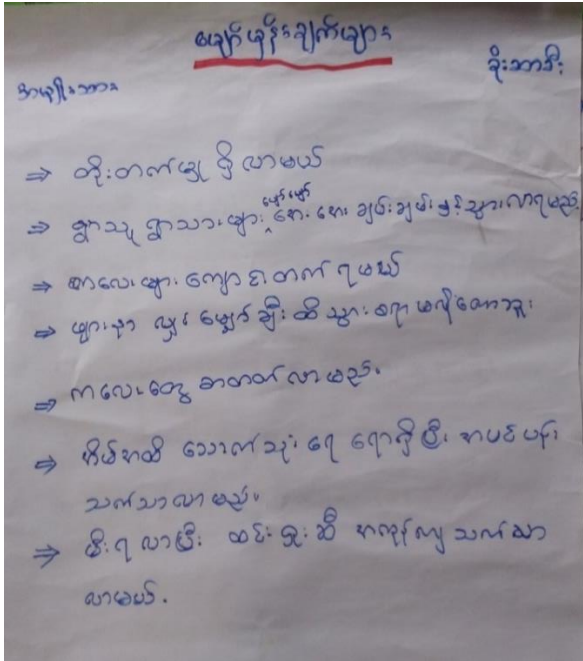 မျှော်မှန်းချက်များ
ခိုးဘာဒီး
အမျိုးသား
⇒ တိုးတက်မှု ရှိလာမယ်
⇒ ရွာသူ ရွာသားများ ပျော်ပျော် အေးအေး ချမ်းချမ်းဖြင့် သွားလာရမည်
⇒ ကလေးများ ကျောင်းတက်ရမယ်
⇒ ဖျားနာ လျှင် မြောက်ချီး ထိသွားစရာ မလိုတော့ဘူး
⇒ ကလေးတွေ စာတတ်လာမည်။
⇒ အိမ်အထိ သောက်သုံးရေ ရောက်ရှိပြီး အပင်ပန်း
သက်သာလာမည်။
⇒ မီးရလာပြီး ထင်းရှူးဆီ အကုန်ကျ သက်သာ
လာမယ်.